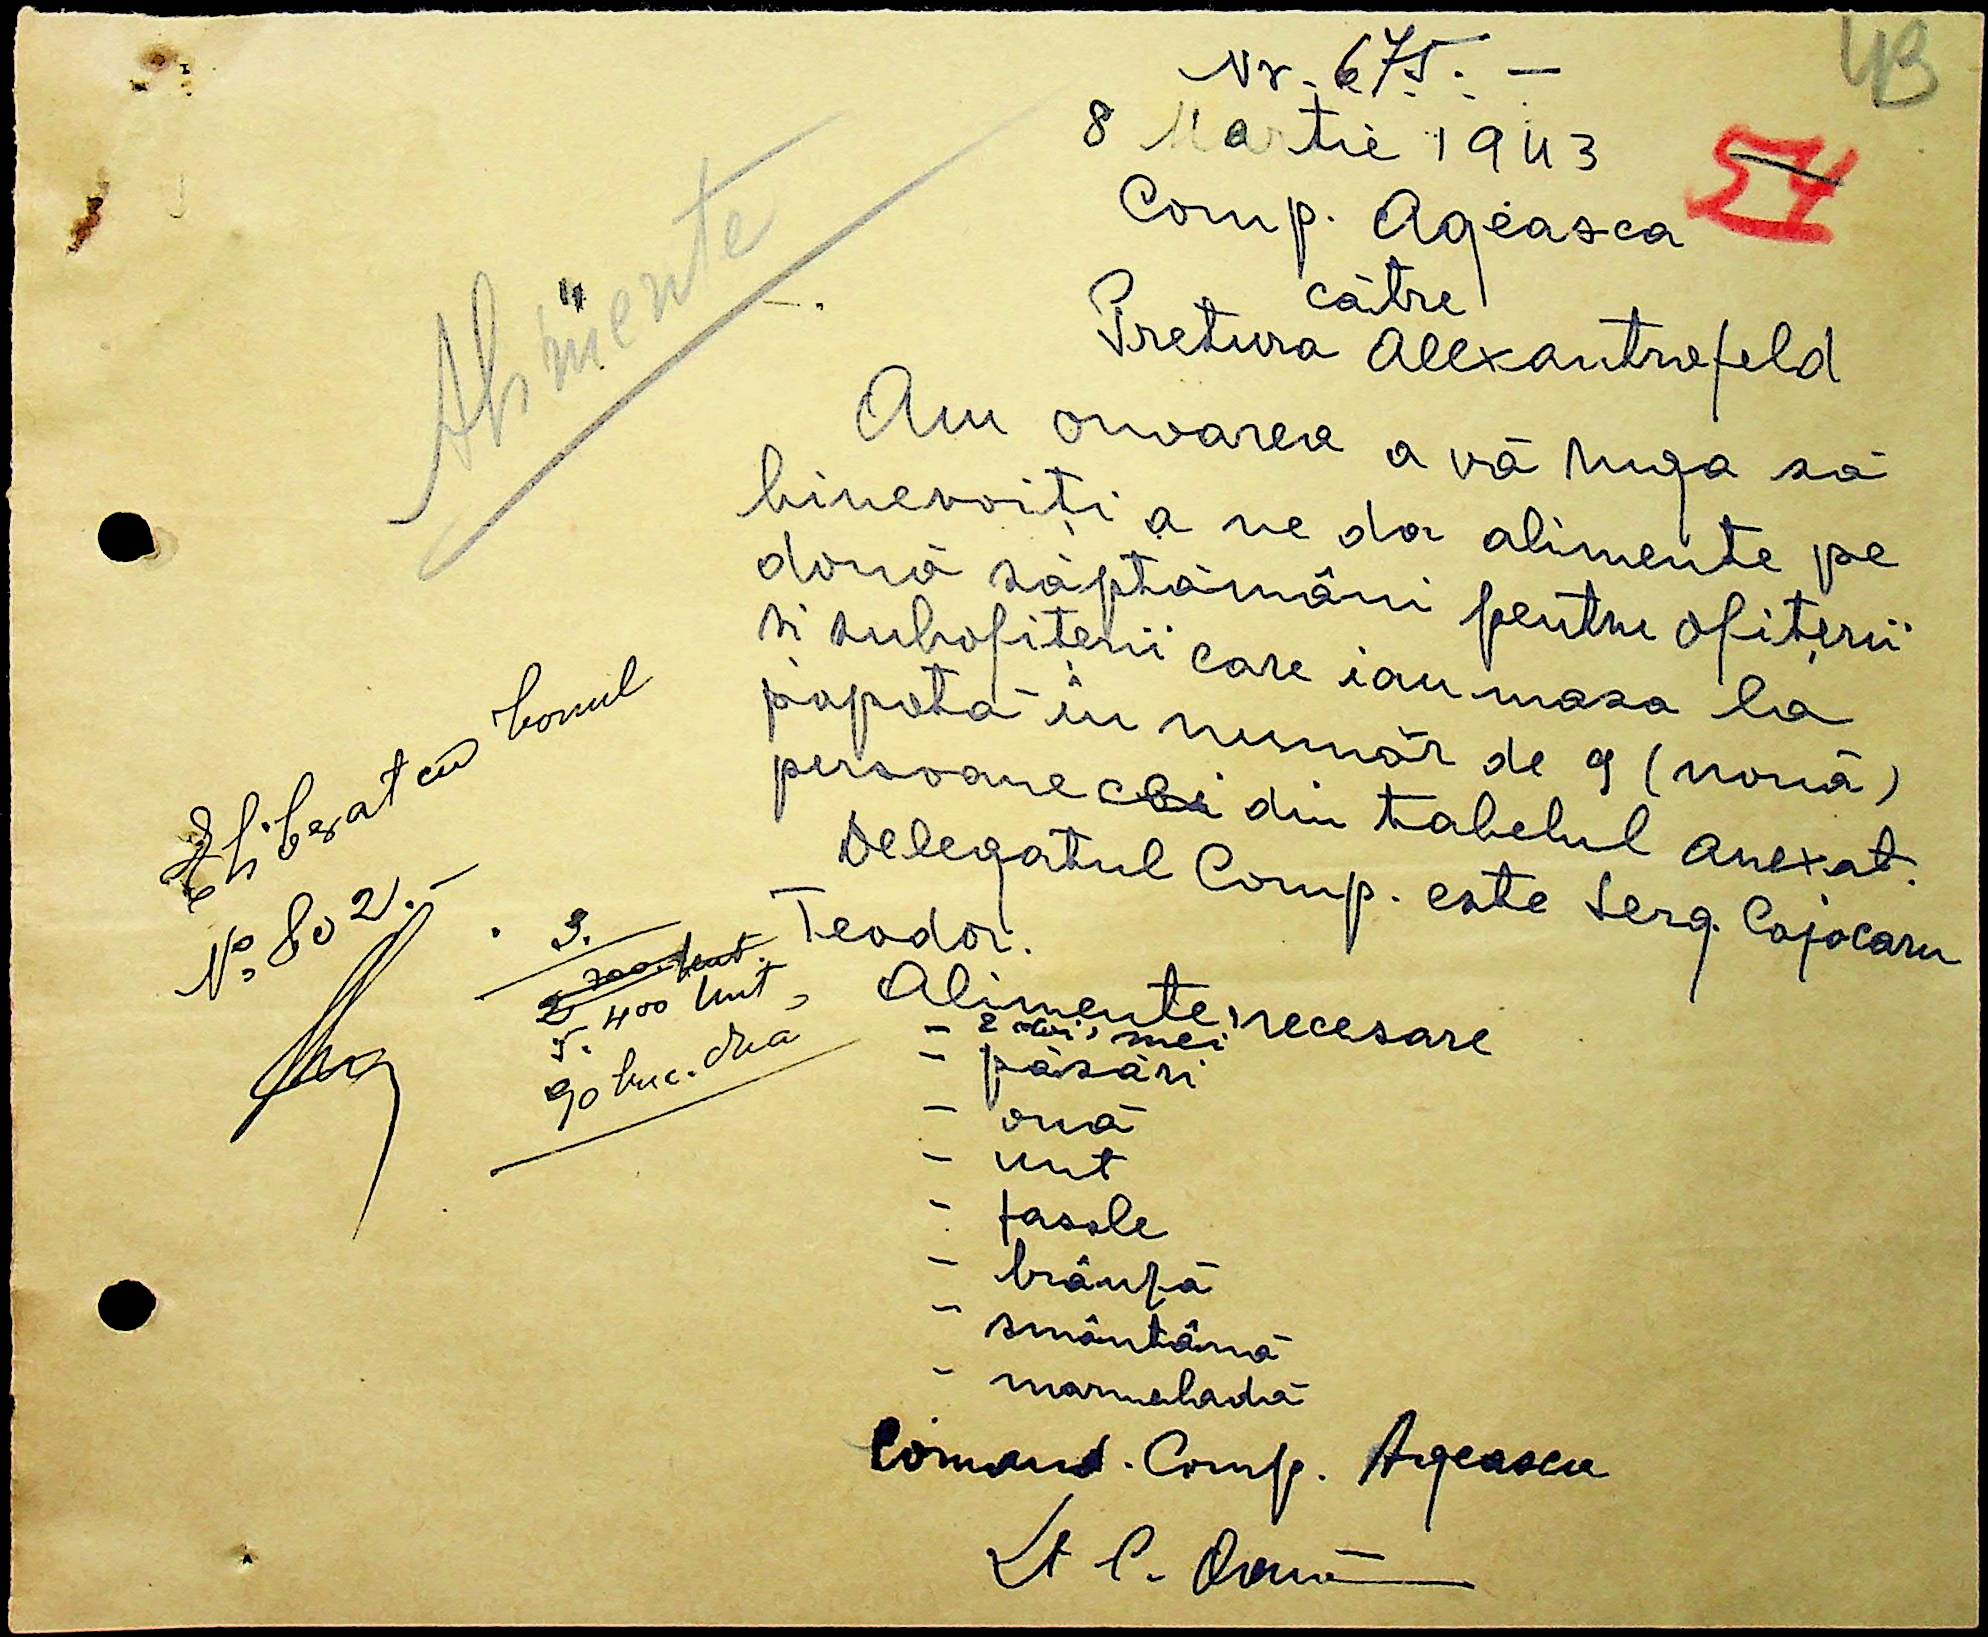 43
Nr. 675. —
8 Martie 1943
Comp. Ageasca
54
către
Pretura Alexantrefeld
Alimente
Am onoarea a vă ruga să
binevoiți a ne da alimente pe
două săptămâni pentru ofițerii
și subofițerii care iau masa la
popotă în număr de 9 (nouă)
persoane cei din tabelul anexat.
Delegatul Comp. este Serg. Cojocaru
Teodor.
Alimente necesare
- 2 miei
- păsări
- ouă
- unt
- fasole
- brânză
- smântână
- marmeladă
Comand. Comp. Ageasca
Lt C.
Eliberat cu bonul
No. 802. —
3.
5. 400 unt,
90 buc. ouă